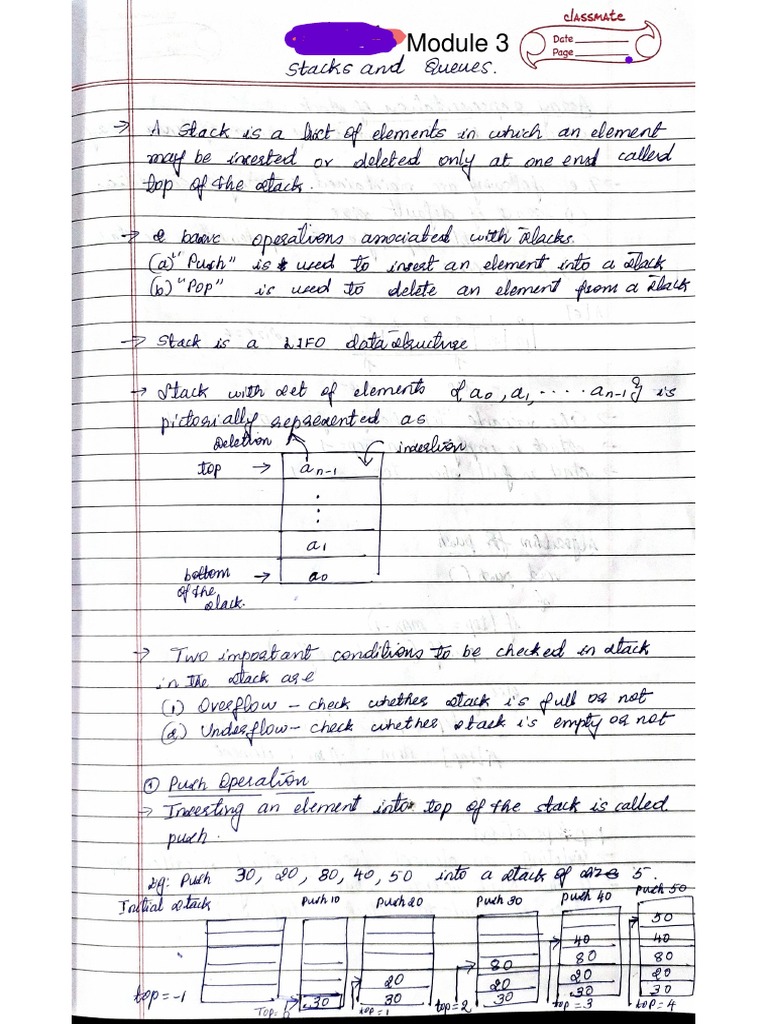 classmate
Date
Page
Module 3
Stacks and Queues.
→ A Stack is a list of elements in which an element
may be inserted or deleted only at one end called
top of the stack.
→ 2 basic operations associated with stacks.
(a) "Push" is used to insert an element into a stack
(b) "Pop" is used to delete an element from a stack
→ Stack is a LIFO data structure
→ Stack with set of elements {a0, a1, ..... an-1} is
pictorially represented as
Deletion insertion
top → an-1
a1
bottom → a0
of the
stack.
→ Two important conditions to be checked in stack
in the stack are
(1) Overflow – check whether stack is full or not
(2) Underflow – check whether stack is empty or not
① Push Operation
→ Inserting an element into top of the stack is called
push.
eg: Push 30, 20, 80, 40, 50 into a stack of size 5.
Initial stack Push 10 Push 20 Push 30 Push 40 Push 50
50
40 40
80 80 80
20 20 20 20
30 30 30 30 30
top=-1 Top=0 top=1 top=2 top=3 top=4